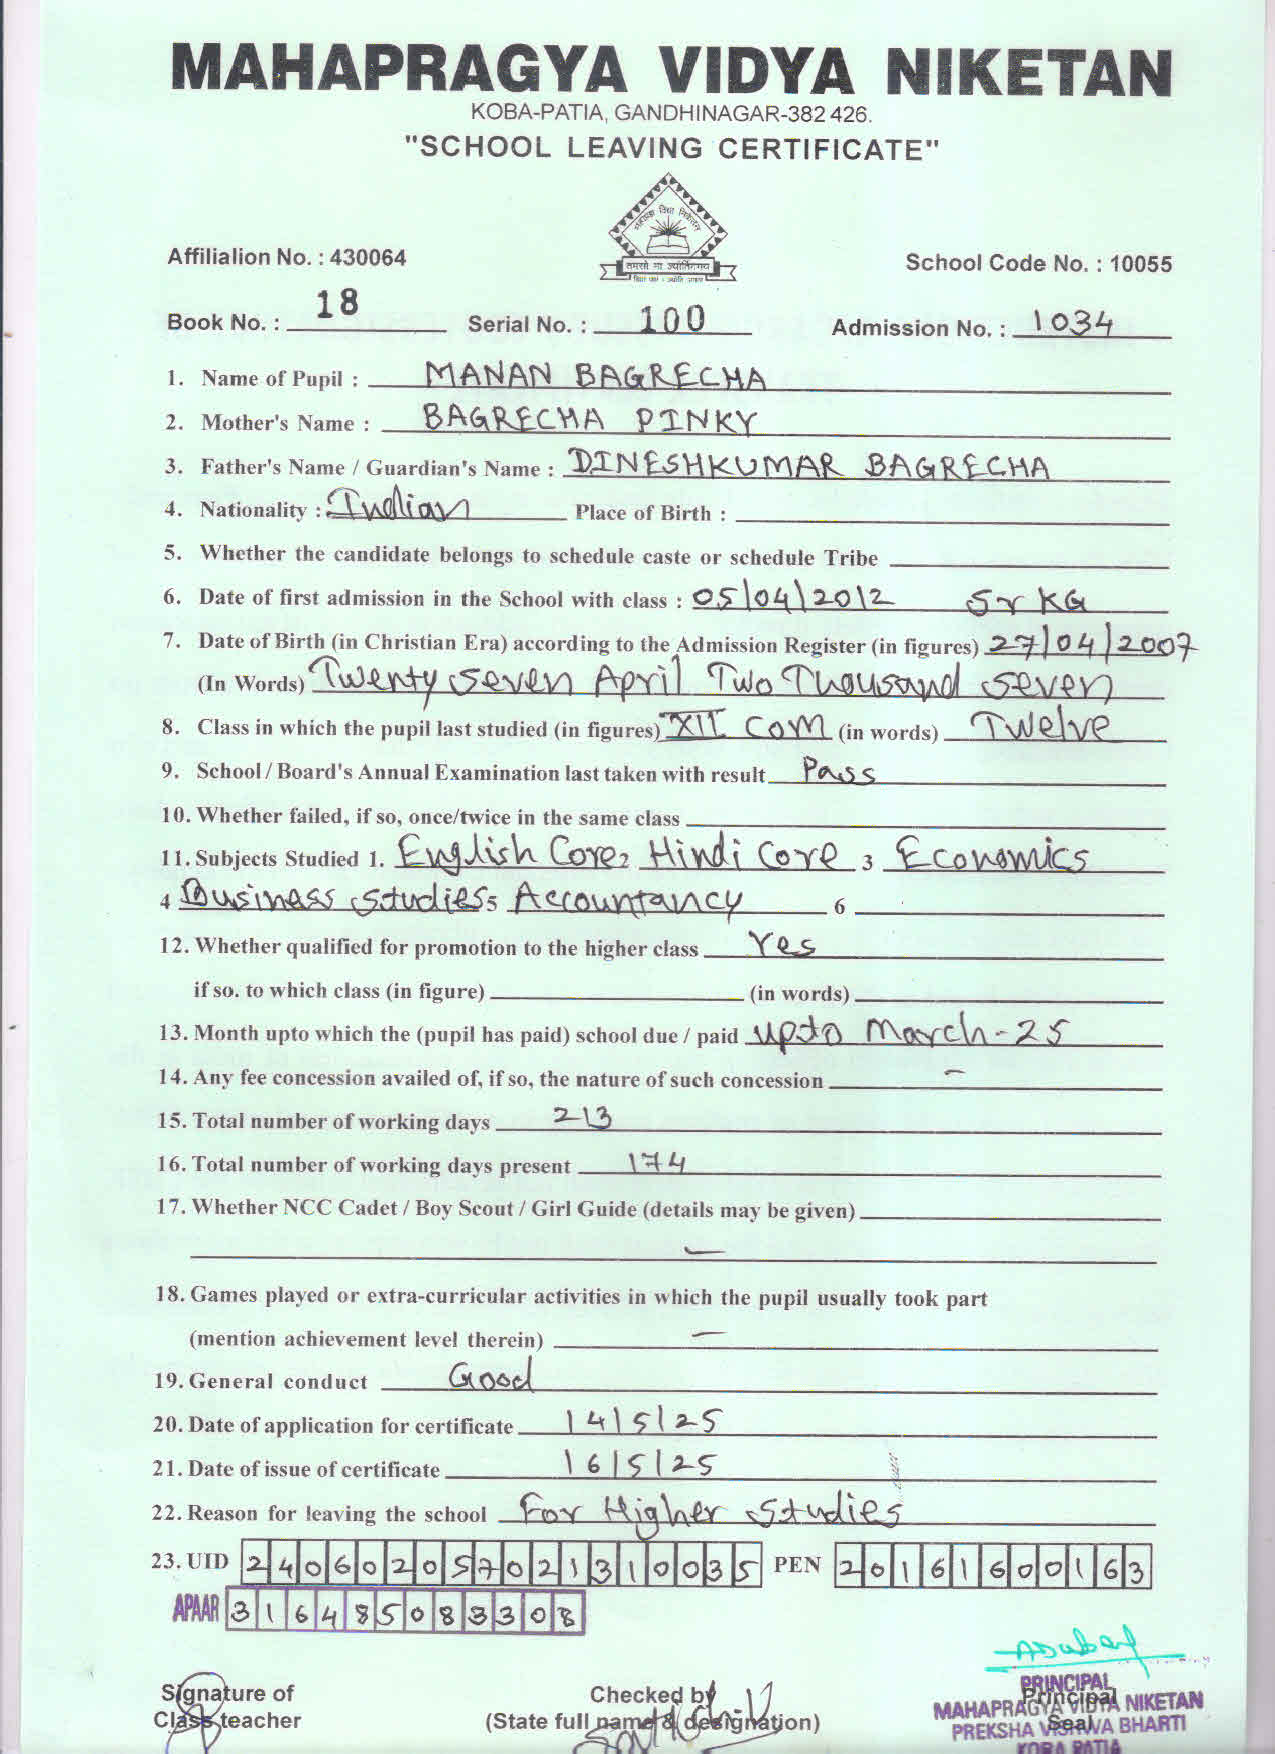 MAHAPRAGYA VIDYA NIKETAN
KOBA-PATIA, GANDHINAGAR-382 426.
"SCHOOL LEAVING CERTIFICATE"
तमसो मा ज्योतिर्गमय
Affilialion No. : 430064
School Code No. : 10055
Book No. : 18 Serial No. : 100 Admission No. : 1034
1. Name of Pupil : MANAN BAGRECHA
2. Mother's Name : BAGRECHA PINKY
3. Father's Name / Guardian's Name : DINESHKUMAR BAGRECHA
4. Nationality : Indian Place of Birth :
5. Whether the candidate belongs to schedule caste or schedule Tribe
6. Date of first admission in the School with class : 05/04/2012 Sr KG
7. Date of Birth (in Christian Era) according to the Admission Register (in figures) 27/04/2007
(In Words) Twenty Seven April Two Thousand Seven
8. Class in which the pupil last studied (in figures) XII COM (in words) Twelve
9. School / Board's Annual Examination last taken with result Pass
10. Whether failed, if so, once/twice in the same class
11. Subjects Studied 1. English Core 2 Hindi Core 3 Economics
4 Business Studies 5 Accountancy 6
12. Whether qualified for promotion to the higher class Yes
if so. to which class (in figure) (in words)
13. Month upto which the (pupil has paid) school due / paid upto March-25
14. Any fee concession availed of, if so, the nature of such concession -
15. Total number of working days 213
16. Total number of working days present 174
17. Whether NCC Cadet / Boy Scout / Girl Guide (details may be given)
-
18. Games played or extra-curricular activities in which the pupil usually took part
(mention achievement level therein) -
19. General conduct Good
20. Date of application for certificate 14/5/25
21. Date of issue of certificate 16/5/25
22. Reason for leaving the school For Higher Studies
23. UID 240602057021310035 PEN 20161600163
APAAR 316485083308
Signature of
Class teacher
Checked by
(State full name & designation)
Principal
Seal
PRINCIPAL
MAHAPRAGYA VIDYA NIKETAN
PREKSHA VISHWA BHARTI
KOBA PATIA